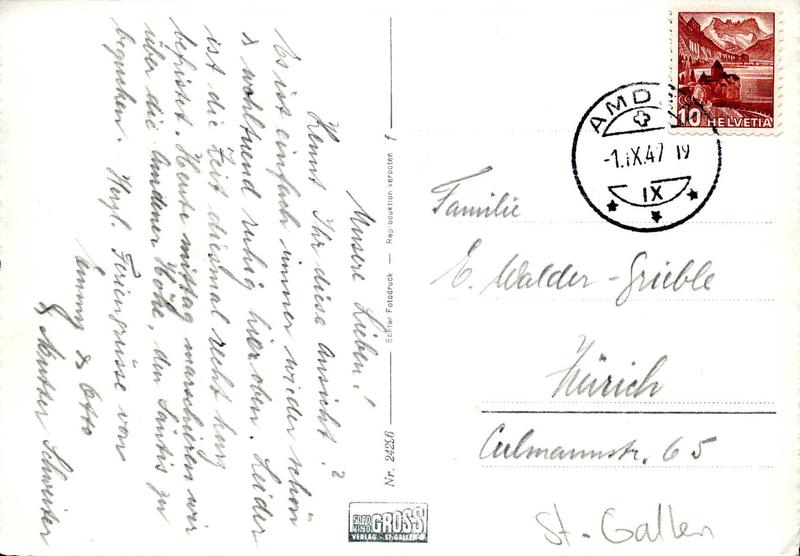 Unsere Lieben!
Kennt Ihr diese Ansicht?
Es ist einfach immer wieder schön
& wohltuend ruhig hier oben. Leider
ist die Zeit diesmal recht kurz
befristet. Heute mittag marschieren wir
über die Amdener Höhe, den Säntis zu
begucken. Herzl. Feriengrüsse von
Emmy & Otto
& Mutter Schweiter
Echter Fotodruck — Reproduktion verboten
Nr. 24236
FOTO GROSS
VERLAG - ST. GALLEN
AMD
-1.IX.47 19
IX
10 HELVETIA
Familie
E. Walder-Grieble
Zürich
Culmannstr. 65
St. Gallen